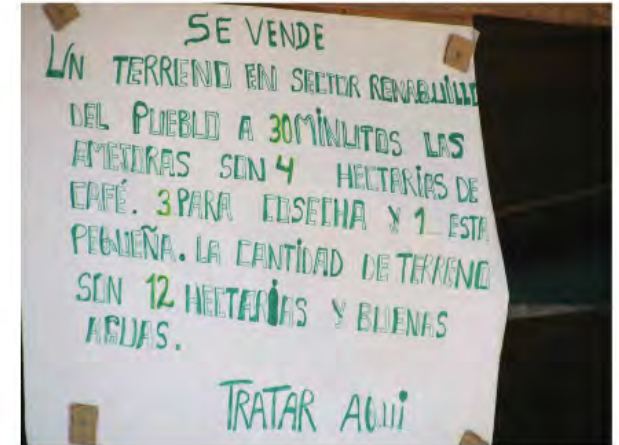 SE VENDE
UN TERRENO EN SECTOR RENABLILLO
DEL PUEBLO A 30 MINUTOS LAS
AMEJORAS SON 4 HECTARIAS DE
CAFÉ. 3 PARA COSECHA Y 1 ESTA
PEQUEÑA. LA CANTIDAD DE TERRENO
SON 12 HECTARIAS Y BUENAS
AGUAS.
TRATAR AQUI